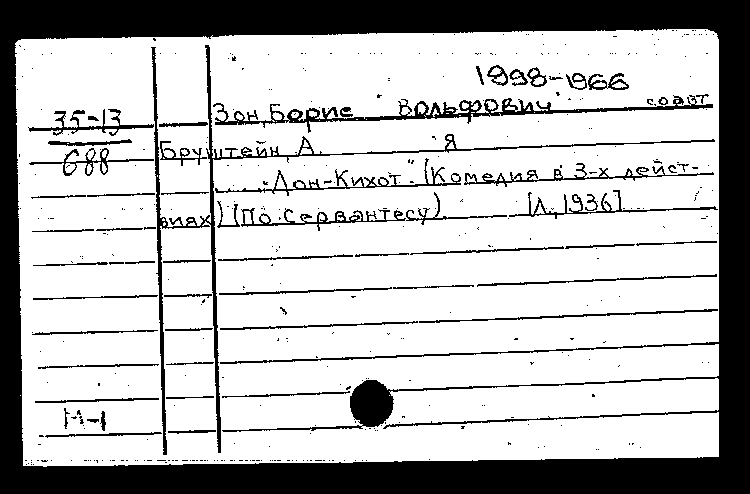 1998-1966
Зон, Борис Вольфович соавт
35-13
688
Бруштейн, А. Я
"Дон-Кихот". (Комедия в 3-х дейст-
виях) (По Сервантесу) [Л., 1936]
М-1